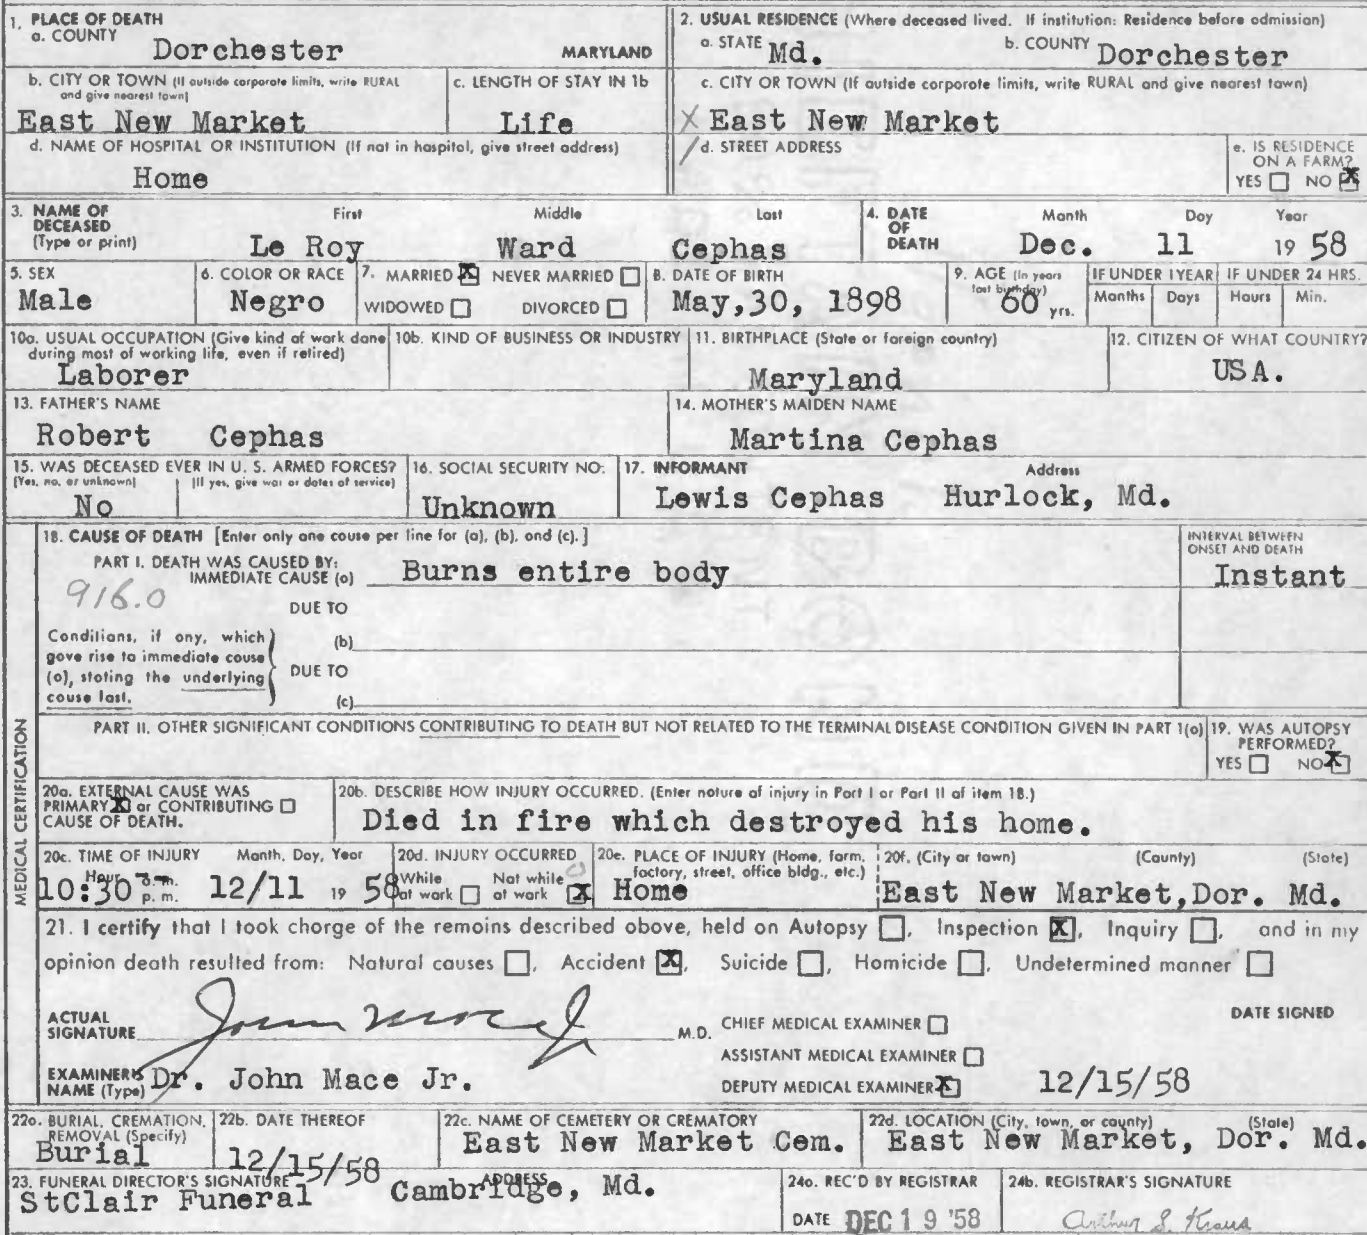 1. PLACE OF DEATH
a. COUNTY Dorchester MARYLAND
2. USUAL RESIDENCE (Where deceased lived. If institution: Residence before admission)
a. STATE Md. b. COUNTY Dorchester
b. CITY OR TOWN (If outside corporate limits, write RURAL and give nearest town)
East New Market
c. LENGTH OF STAY IN 1b
Life
c. CITY OR TOWN (If outside corporate limits, write RURAL and give nearest town)
X East New Market
d. NAME OF HOSPITAL OR INSTITUTION (If not in hospital, give street address)
Home
d. STREET ADDRESS
e. IS RESIDENCE ON A FARM?
YES NO X
3. NAME OF DECEASED (Type or print)
First Middle Last
Le Roy Ward Cephas
4. DATE OF DEATH
Month Day Year
Dec. 11 19 58
5. SEX
Male
6. COLOR OR RACE
Negro
7. MARRIED X NEVER MARRIED
WIDOWED DIVORCED
8. DATE OF BIRTH
May,30, 1898
9. AGE (In years last birthday)
60 yrs.
IF UNDER 1 YEAR
Months Days
IF UNDER 24 HRS.
Hours Min.
10a. USUAL OCCUPATION (Give kind of work done during most of working life, even if retired)
Laborer
10b. KIND OF BUSINESS OR INDUSTRY
11. BIRTHPLACE (State or foreign country)
Maryland
12. CITIZEN OF WHAT COUNTRY?
USA.
13. FATHER'S NAME
Robert Cephas
14. MOTHER'S MAIDEN NAME
Martina Cephas
15. WAS DECEASED EVER IN U. S. ARMED FORCES?
(Yes, no, or unknown) (If yes, give war or dates of service)
No
16. SOCIAL SECURITY NO.
Unknown
17. INFORMANT Address
Lewis Cephas Hurlock, Md.
MEDICAL CERTIFICATION
18. CAUSE OF DEATH [Enter only one cause per line for (a), (b), and (c).]
INTERVAL BETWEEN ONSET AND DEATH
PART I. DEATH WAS CAUSED BY:
IMMEDIATE CAUSE (a) Burns entire body Instant
916.0
DUE TO
Conditions, if any, which gave rise to immediate cause (a), stating the underlying cause last.
(b)
DUE TO
(c)
PART II. OTHER SIGNIFICANT CONDITIONS CONTRIBUTING TO DEATH BUT NOT RELATED TO THE TERMINAL DISEASE CONDITION GIVEN IN PART 1(a)
19. WAS AUTOPSY PERFORMED?
YES NO X
20a. EXTERNAL CAUSE WAS
PRIMARY X or CONTRIBUTING
CAUSE OF DEATH.
20b. DESCRIBE HOW INJURY OCCURRED. (Enter nature of injury in Part I or Part II of item 18.)
Died in fire which destroyed his home.
20c. TIME OF INJURY Month, Day, Year
Hour a.m. p.m.
10:30 12/11 19 58
20d. INJURY OCCURRED
While at work Not while at work X
20e. PLACE OF INJURY (Home, farm, factory, street, office bldg., etc.)
Home
20f. (City or town) (County) (State)
East New Market,Dor. Md.
21. I certify that I took charge of the remains described above, held on Autopsy , Inspection X, Inquiry , and in my
opinion death resulted from: Natural causes , Accident X, Suicide , Homicide , Undetermined manner
ACTUAL SIGNATURE John Mace Jr M.D.
CHIEF MEDICAL EXAMINER
DATE SIGNED
ASSISTANT MEDICAL EXAMINER
EXAMINER'S NAME (Type) Dr. John Mace Jr.
DEPUTY MEDICAL EXAMINER X 12/15/58
22a. BURIAL, CREMATION, REMOVAL (Specify)
Burial
22b. DATE THEREOF
12/15/58
22c. NAME OF CEMETERY OR CREMATORY
East New Market Cem.
22d. LOCATION (City, town, or county) (State)
East New Market, Dor. Md.
23. FUNERAL DIRECTOR'S SIGNATURE ADDRESS
StClair Funeral Cambridge, Md.
24a. REC'D BY REGISTRAR
DATE DEC 19 '58
24b. REGISTRAR'S SIGNATURE
Arthur S. Kraus